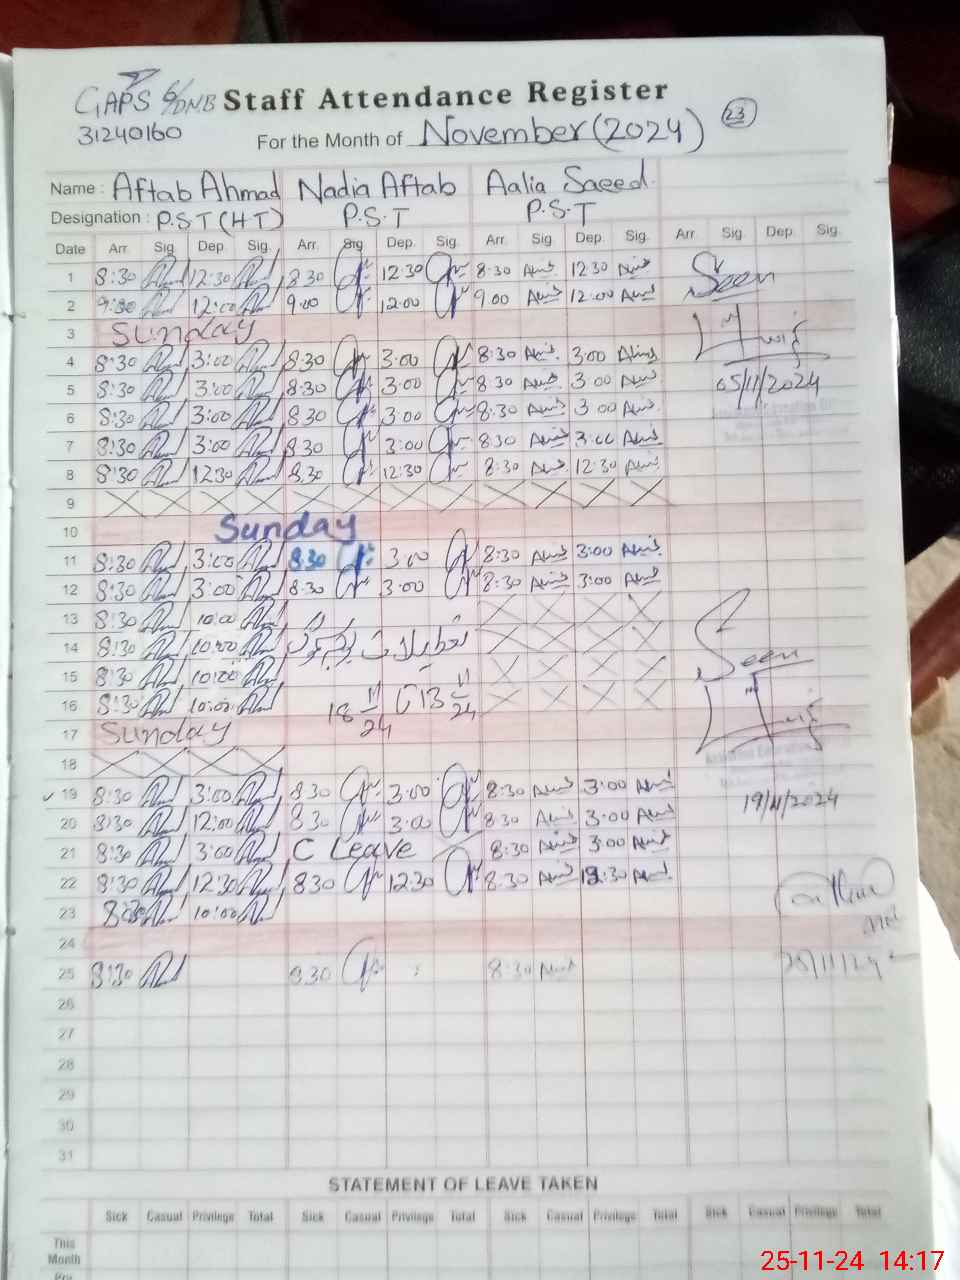 GAPS 6/DNB Staff Attendance Register
31240160
For the Month of November (2024) 23
Name : Aftab Ahmad Nadia Aftab Aalia Saeed
Designation : P.S.T (HT) P.S.T P.S.T
Date Arr. Sig. Dep. Sig. Arr. Sig. Dep. Sig. Arr. Sig. Dep. Sig. Arr. Sig. Dep. Sig.
1 8:30 12:30 8.30 12:30 8:30 12:30 Seen
2 9:00 12:00 9.00 12:00 9.00 12:00
3 Sunday
4 8:30 3:00 8:30 3:00 8:30 3:00
5 8:30 3:00 8:30 3:00 8:30 3:00 05/11/2024
6 8:30 3:00 8:30 3:00 8:30 3:00
7 8:30 3:00 8:30 3:00 8:30 3:00
8 8:30 12:30 8:30 12:30 8:30 12:30
9
10 Sunday
11 8:30 3:00 8:30 3:00 8:30 3:00
12 8:30 3:00 8:30 3:00 8:30 3:00
13 8:30 10:00
14 8:30 10:00 تعطیلات
15 8:30 10:00 Seen
16 8:30 10:00 18 11/24 13 11/24
17 Sunday
18
19 8:30 3:00 8:30 3:00 8:30 3:00 19/11/2024
20 8:30 12:00 8:30 3:00 8:30 3:00
21 8:30 3:00 C Leave 8:30 3:00
22 8:30 12:30 8:30 12:30 8:30 12:30
23 8:30 10:00
24
25 8:30 8:30 8:30 25/11/24
26
27
28
29
30
31
STATEMENT OF LEAVE TAKEN
Sick Casual Privilege Total Sick Casual Privilege Total Sick Casual Privilege Total Sick Casual Privilege Total
This Month
25-11-24 14:17